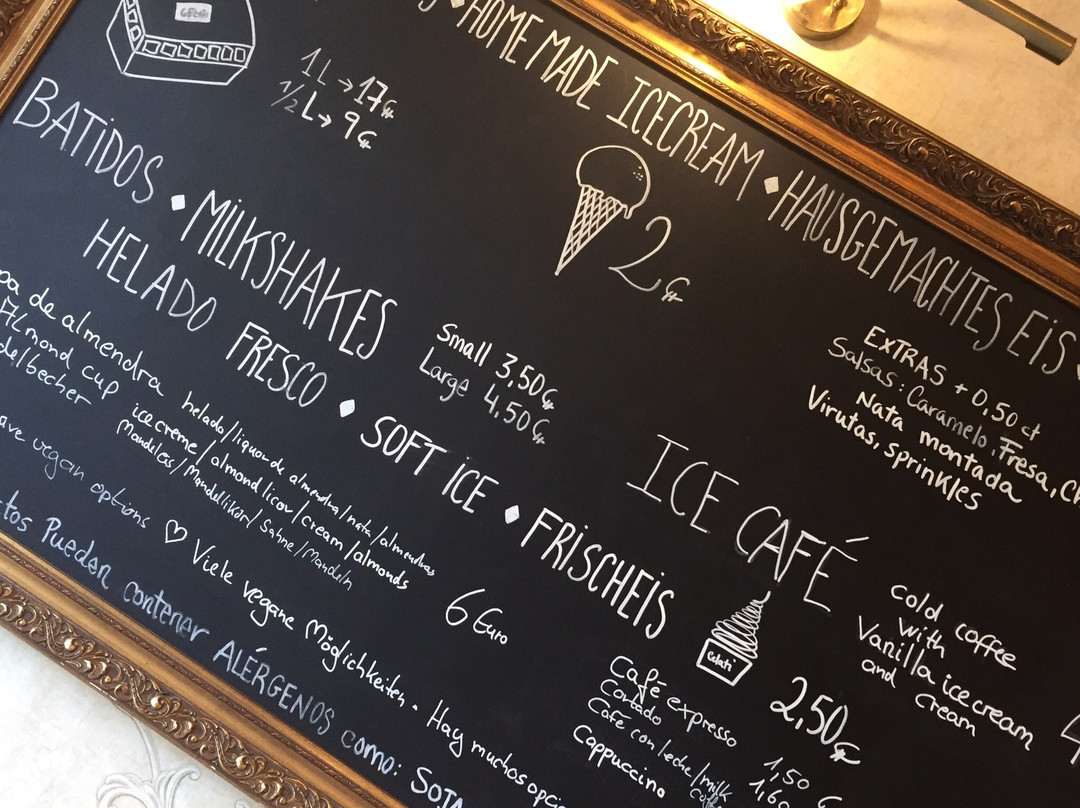 HOME MADE ICECREAM ◆ HAUSGEMACHTES EIS
1L → 17€
1/2 L → 9€
2€
BATIDOS ◆ MILKSHAKES
Small 3,50€
Large 4,50€
EXTRAS + 0,50 ct
Salsas: Caramelo, Fresa,
Nata montada
Virutas, sprinkles
HELADO FRESCO ◆ SOFT ICE ◆ FRISCHEIS
Gelati
2,50€
de almendra helado/liquor de almendra/nata/almendras
cup icecreme/almond licor/cream/almonds
Mandeleis/Mandellikör/Sahne/Mandeln
6 Euro
ICE CAFÉ
Cold coffee
with
Vanilla icecream
and cream
vegan options ♡ Viele vegane Möglichkeiten. Hay muchos
Pueden contener ALÉRGENOS como:
Café expresso 1,50
Cortado 1,60
Café con leche/milk
Cappuccino